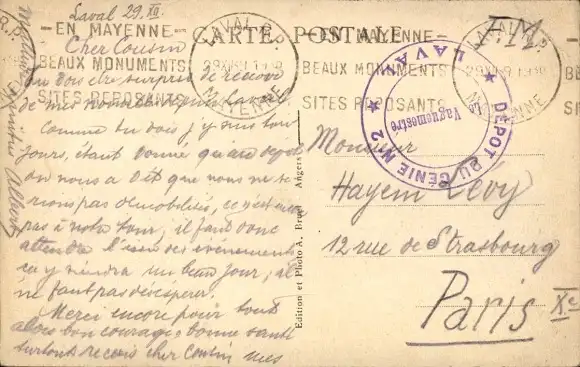 Laval 29.XII.
CARTE POSTALE
-EN MAYENNE-
BEAUX MONUMENTS
SITES REPOSANTS
-EN MAYENNE-
BEAUX MONUMENTS
SITES REPOSANTS
LAVAL R.P.
MAYENNE
LAVAL R.P.
MAYENNE
F.M.
DÉPÔT DU GÉNIE N°2 ★ LAVAL ★
Le Vaguemestre
Cher Cousin
surpris de
de
Comme tu dois j'y suis tou
jours, étant donné qu'au dépot
on nous a dit que nous ne se
rions pas démobilisés, ce n'est
pas à notre tour, il faut donc
attendre des événements
ça viendra un beau jour, il
ne faut pas désespérer.
Merci encore pour tout
alors bon courage, bonne santé
surtout reçois cher cousin mes
Edition et Photo A. Bruel Angers
Monsieur
Hayem Lévy
12 rue de Strasbourg
Paris Xe